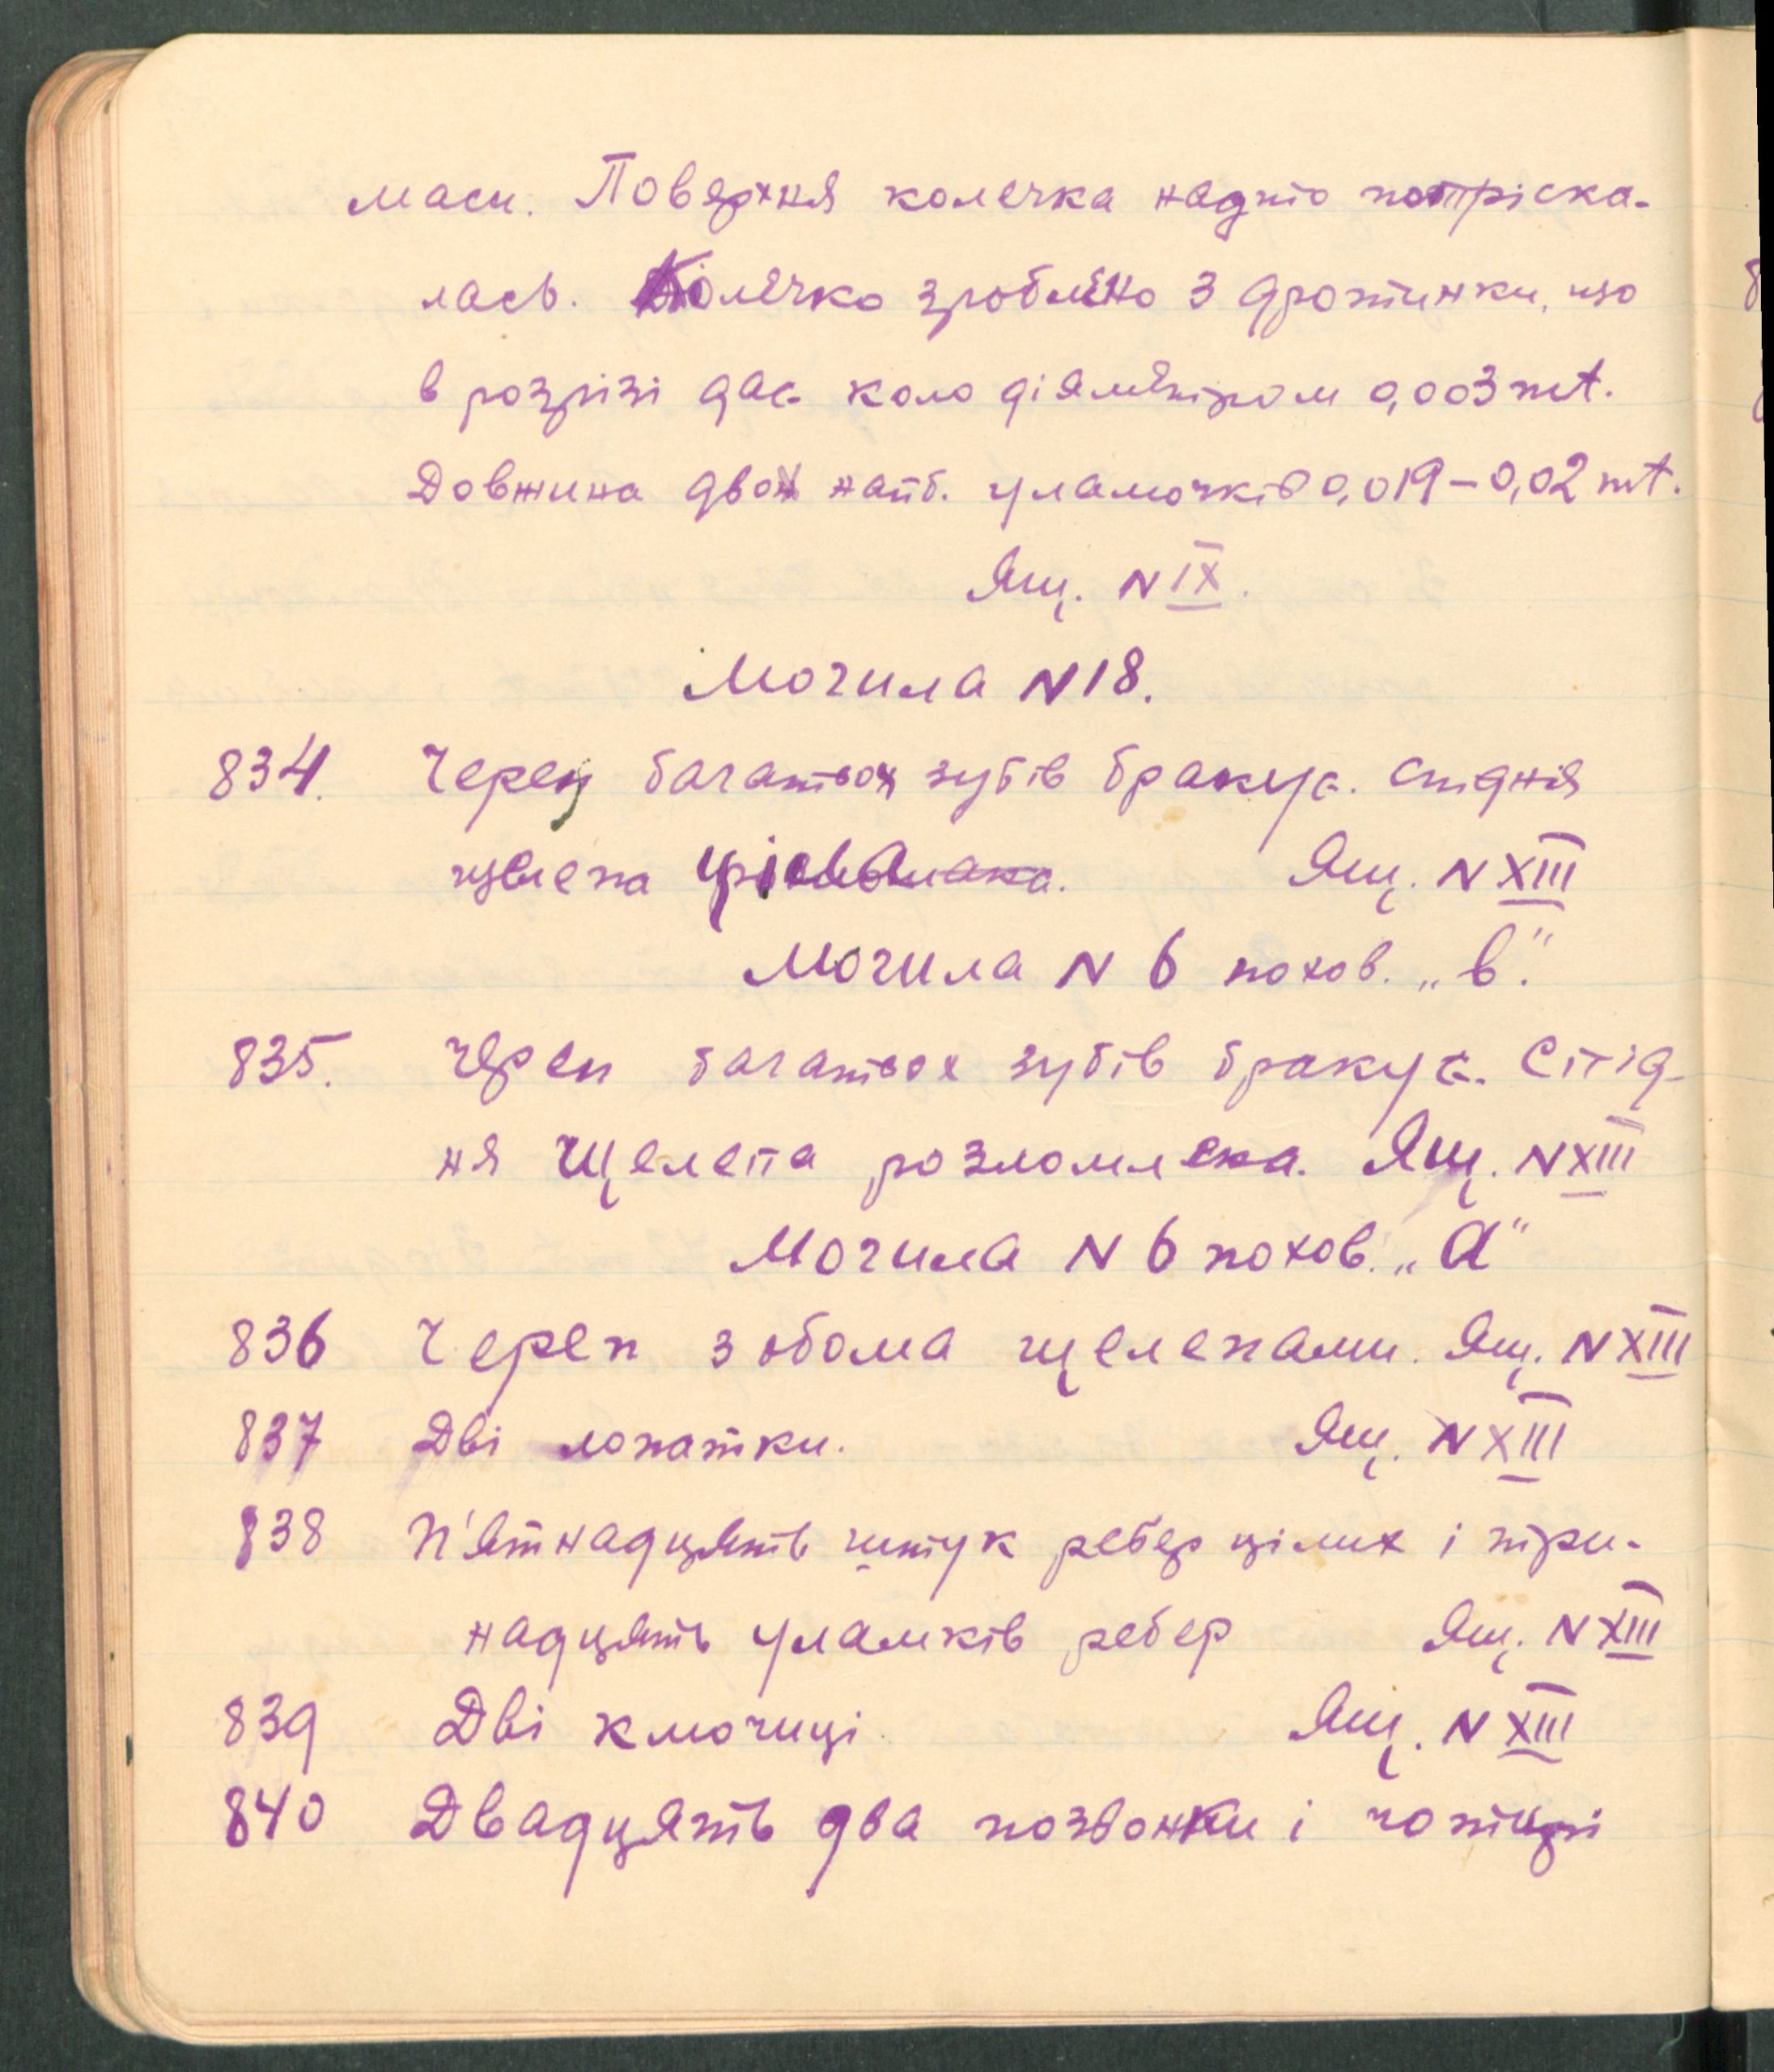 маси. Поверхня колечка надто потріска-
лась. Колечко зроблено з дротинки, що
в розрізі дає коло діяметром 0,003 mt.
Довжина двох найб. уламочків 0,019 – 0,02 mt.
Ящ. N IX.
Могила N 18.
834. Череп багатьох зубів бракує. Спідня
щелепа Ящ. N XIII
Могила N 6 похов. „в".
835. Череп багатьох зубів бракує. Спід-
ня щелепа розломлена. Ящ. N XIII
Могила N 6 похов. „а"
836 Череп з обома щелепами. Ящ. N XIII
837 Дві лопатки. Ящ. N XIII
838 П'ятнадцять штук ребер цілих і три-
надцять уламків ребер Ящ. N XIII
839 Дві ключиці. Ящ. N XIII
840 Двадцять два позвонки і чотирі